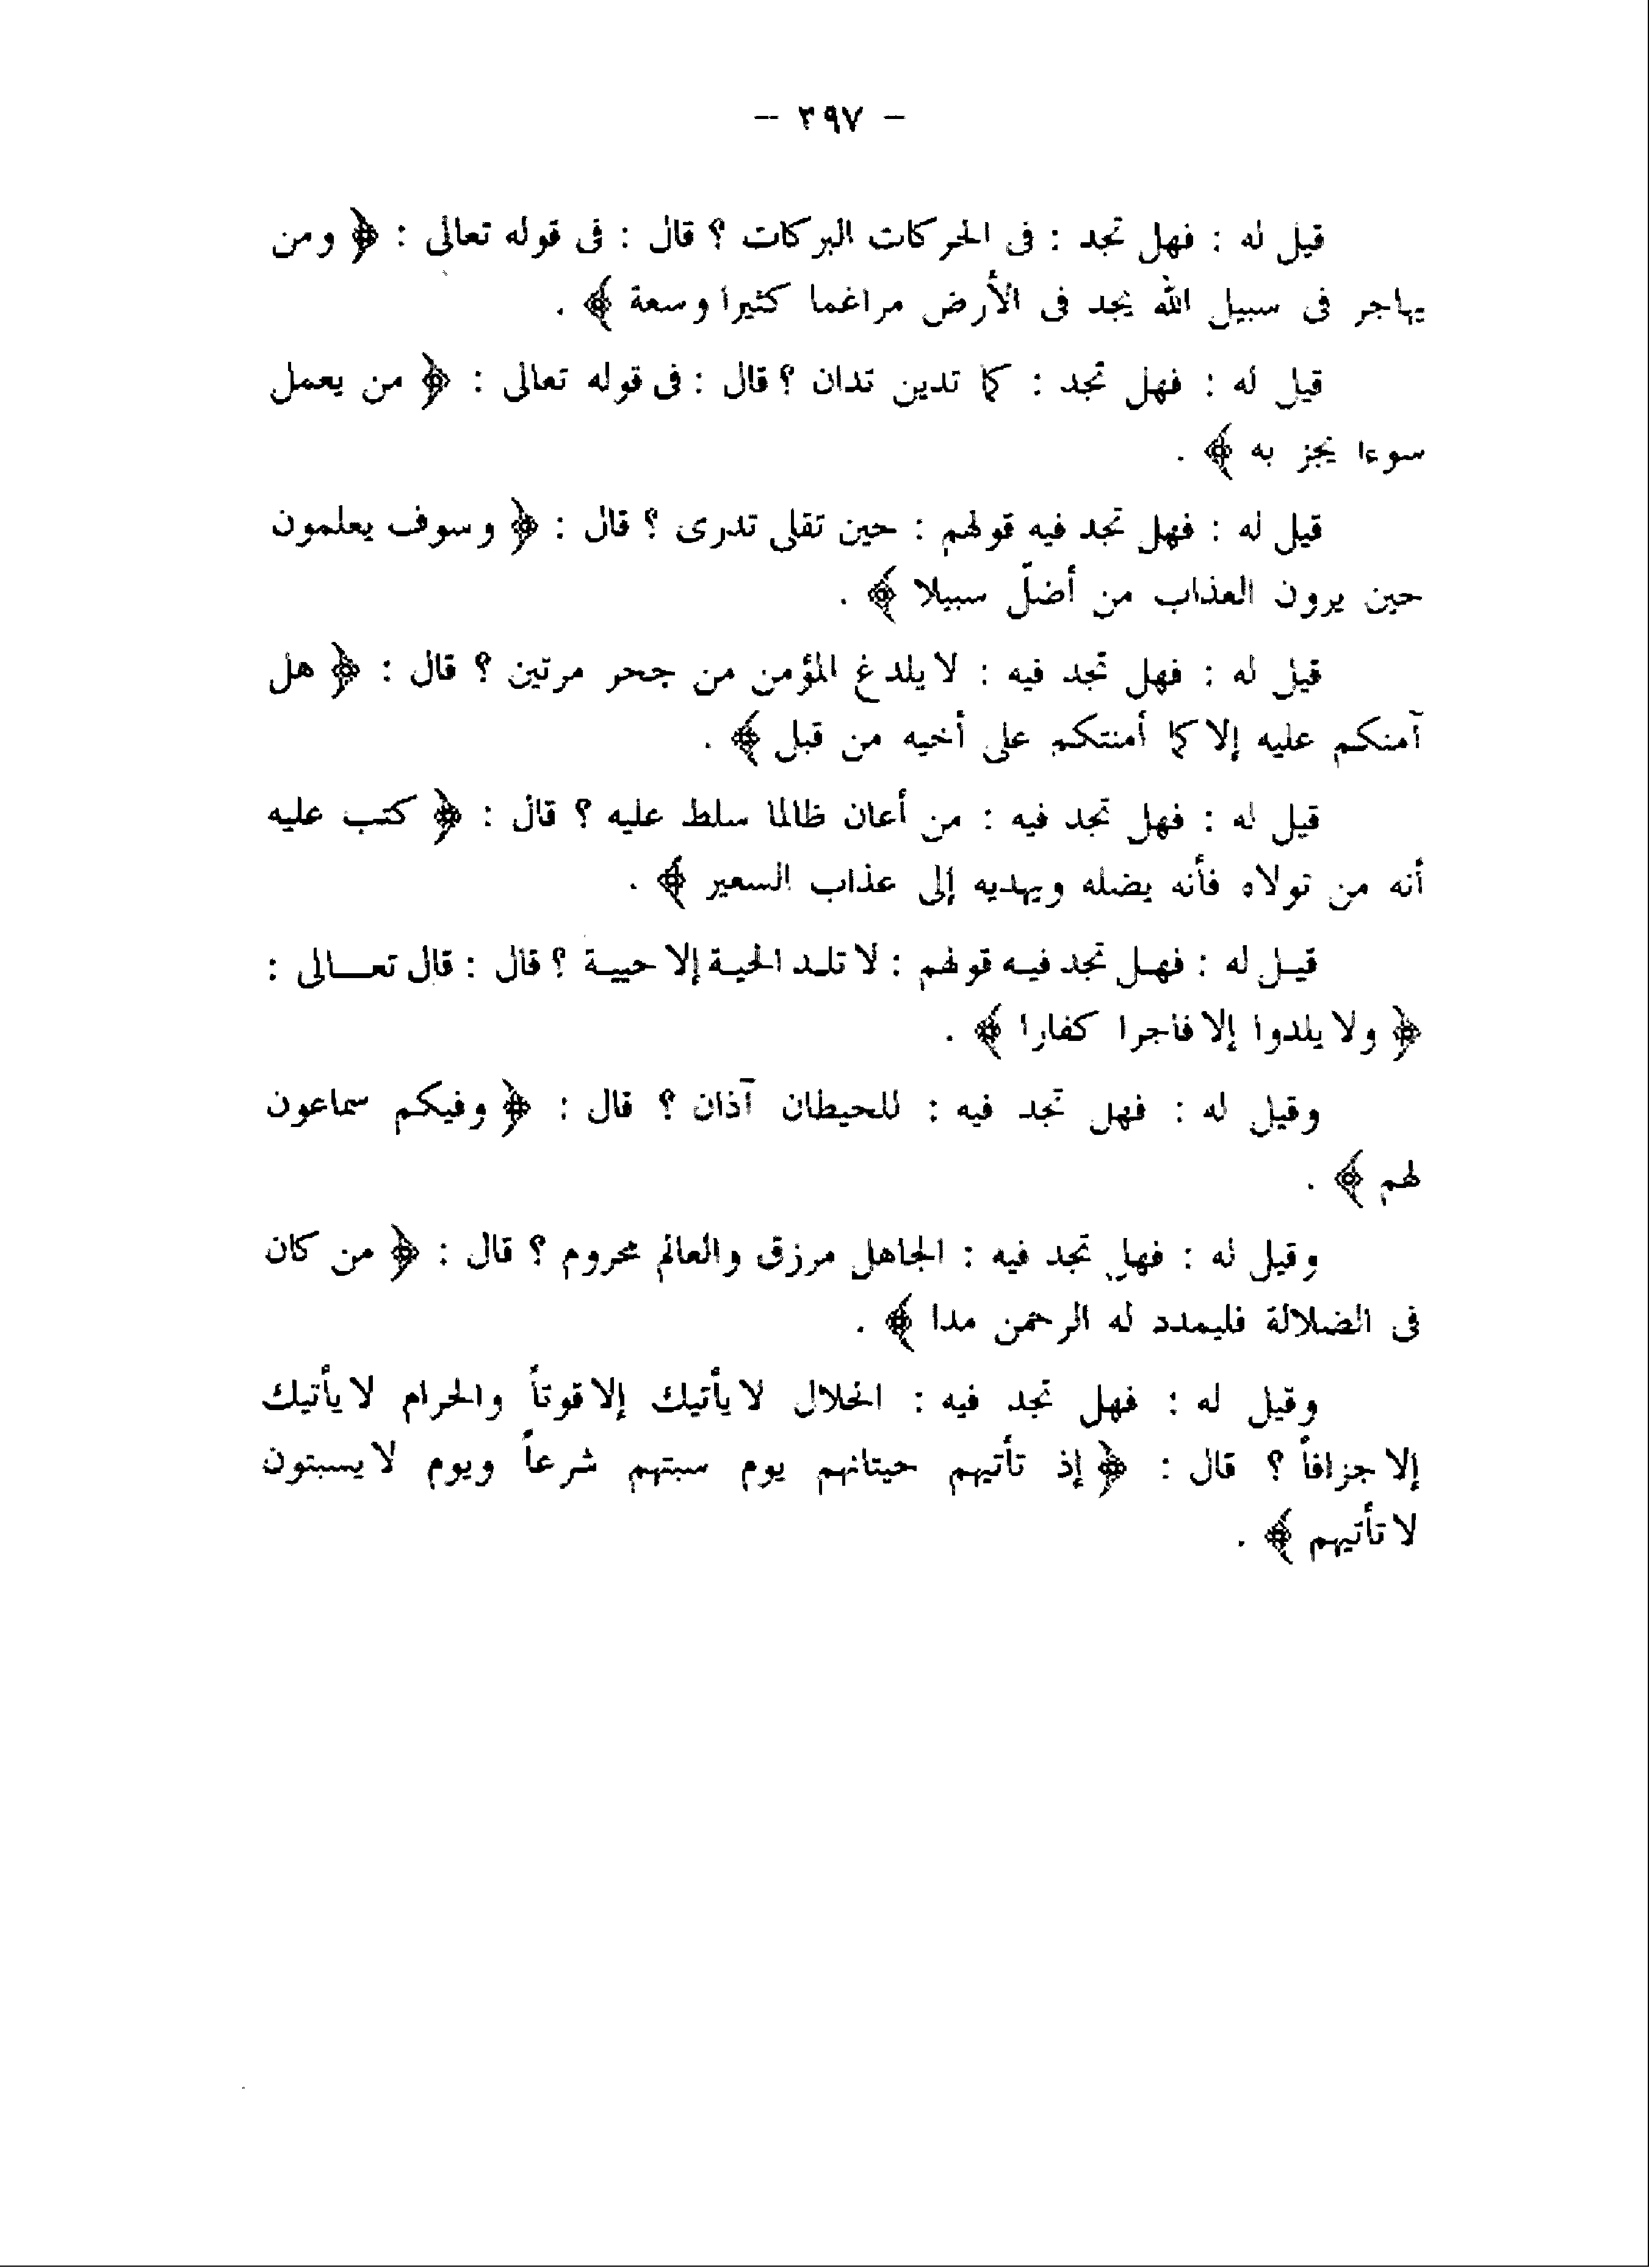 - ٣٩٧ -
قيل له : فهل تجد : فى الحركات البركات ؟ قال : فى قوله تعالى : ﴿ ومن
يهاجر فى سبيل الله يجد فى الأرض مراغما كثيرا وسعة ﴾ .
قيل له : فهل تجد : كما تدين تدان ؟ قال : فى قوله تعالى : ﴿ من يعمل
سوءا يجز به ﴾ .
قيل له : فهل تجد فيه قولهم : حين تقلى تدرى ؟ قال : ﴿ وسوف يعلمون
حين يرون العذاب من أضلّ سبيلا ﴾ .
قيل له : فهل تجد فيه : لا يلدغ المؤمن من جحر مرتين ؟ قال : ﴿ هل
آمنكم عليه إلا كما أمنتكم على أخيه من قبل ﴾ .
قيل له : فهل تجد فيه : من أعان ظالما سلط عليه ؟ قال : ﴿ كتب عليه
أنه من تولاه فأنه يضله ويهديه إلى عذاب السعير ﴾ .
قيل له : فهل تجد فيه قولهم : لا تلد الحية إلا حيية ؟ قال : قال تعالى :
﴿ ولا يلدوا إلا فاجرا كفارا ﴾ .
وقيل له : فهل تجد فيه : للحيطان آذان ؟ قال : ﴿ وفيكم سماعون
لهم ﴾ .
وقيل له : فهل تجد فيه : الجاهل مرزق والعالم محروم ؟ قال : ﴿ من كان
فى الضلالة فليمدد له الرحمن مدا ﴾ .
وقيل له : فهل تجد فيه : الحلال لا يأتيك إلا قوتاً والحرام لا يأتيك
إلا جزافاً ؟ قال : ﴿ إذ تأتيهم حيتانهم يوم سبتهم شرعاً ويوم لا يسبتون
لا تأتيهم ﴾ .